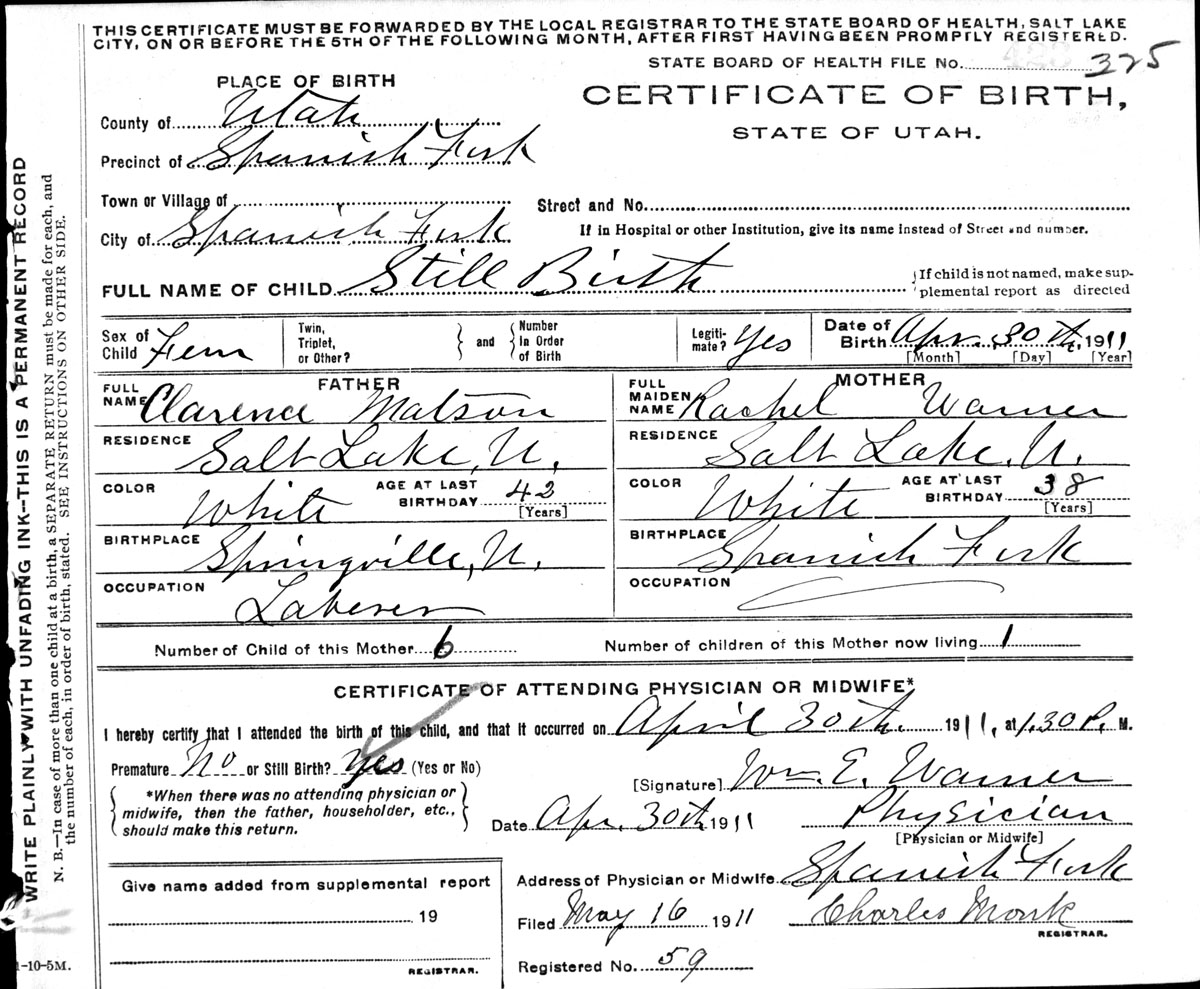 THIS CERTIFICATE MUST BE FORWARDED BY THE LOCAL REGISTRAR TO THE STATE BOARD OF HEALTH, SALT LAKE
CITY, ON OR BEFORE THE 5TH OF THE FOLLOWING MONTH, AFTER FIRST HAVING BEEN PROMPTLY REGISTERED.
STATE BOARD OF HEALTH FILE No. 325
PLACE OF BIRTH
CERTIFICATE OF BIRTH,
STATE OF UTAH.
County of Utah
Precinct of Spanish Fork
Town or Village of
Street and No.
City of Spanish Fork
If in Hospital or other Institution, give its name instead of Street and number.
FULL NAME OF CHILD Still Birth
If child is not named, make supplemental report as directed
Sex of Child Fem
Twin, Triplet, or Other?
and
Number In Order of Birth
Legitimate? Yes
Date of Birth Apr. 30th, 1911
[Month] [Day] [Year]
FATHER
FULL NAME Clarence Matson
RESIDENCE Salt Lake, U.
COLOR White
AGE AT LAST BIRTHDAY 42
[Years]
BIRTHPLACE Springville, U.
OCCUPATION Laberer
MOTHER
FULL MAIDEN NAME Rachel Warner
RESIDENCE Salt Lake, U.
COLOR White
AGE AT LAST BIRTHDAY 38
[Years]
BIRTHPLACE Spanish Fork
OCCUPATION
Number of Child of this Mother 6
Number of children of this Mother now living 1
CERTIFICATE OF ATTENDING PHYSICIAN OR MIDWIFE*
I hereby certify that I attended the birth of this child, and that it occurred on April 30th. 1911, at 1.30 P. M.
Premature No or Still Birth? Yes (Yes or No)
[Signature] Wm. E. Warner
*When there was no attending physician or
midwife, then the father, householder, etc.,
should make this return.
Date Apr. 30th 1911
Physician
[Physician or Midwife]
Give name added from supplemental report
19
REGISTRAR.
Address of Physician or Midwife Spanish Fork
Filed May 16 1911
Charles Monk
REGISTRAR.
Registered No. 59
WRITE PLAINLY WITH UNFADING INK--THIS IS A PERMANENT RECORD
N. B.—In case of more than one child at a birth, a SEPARATE RETURN must be made for each, and
the number of each, in order of birth, stated. SEE INSTRUCTIONS ON OTHER SIDE.
1-10-5M.